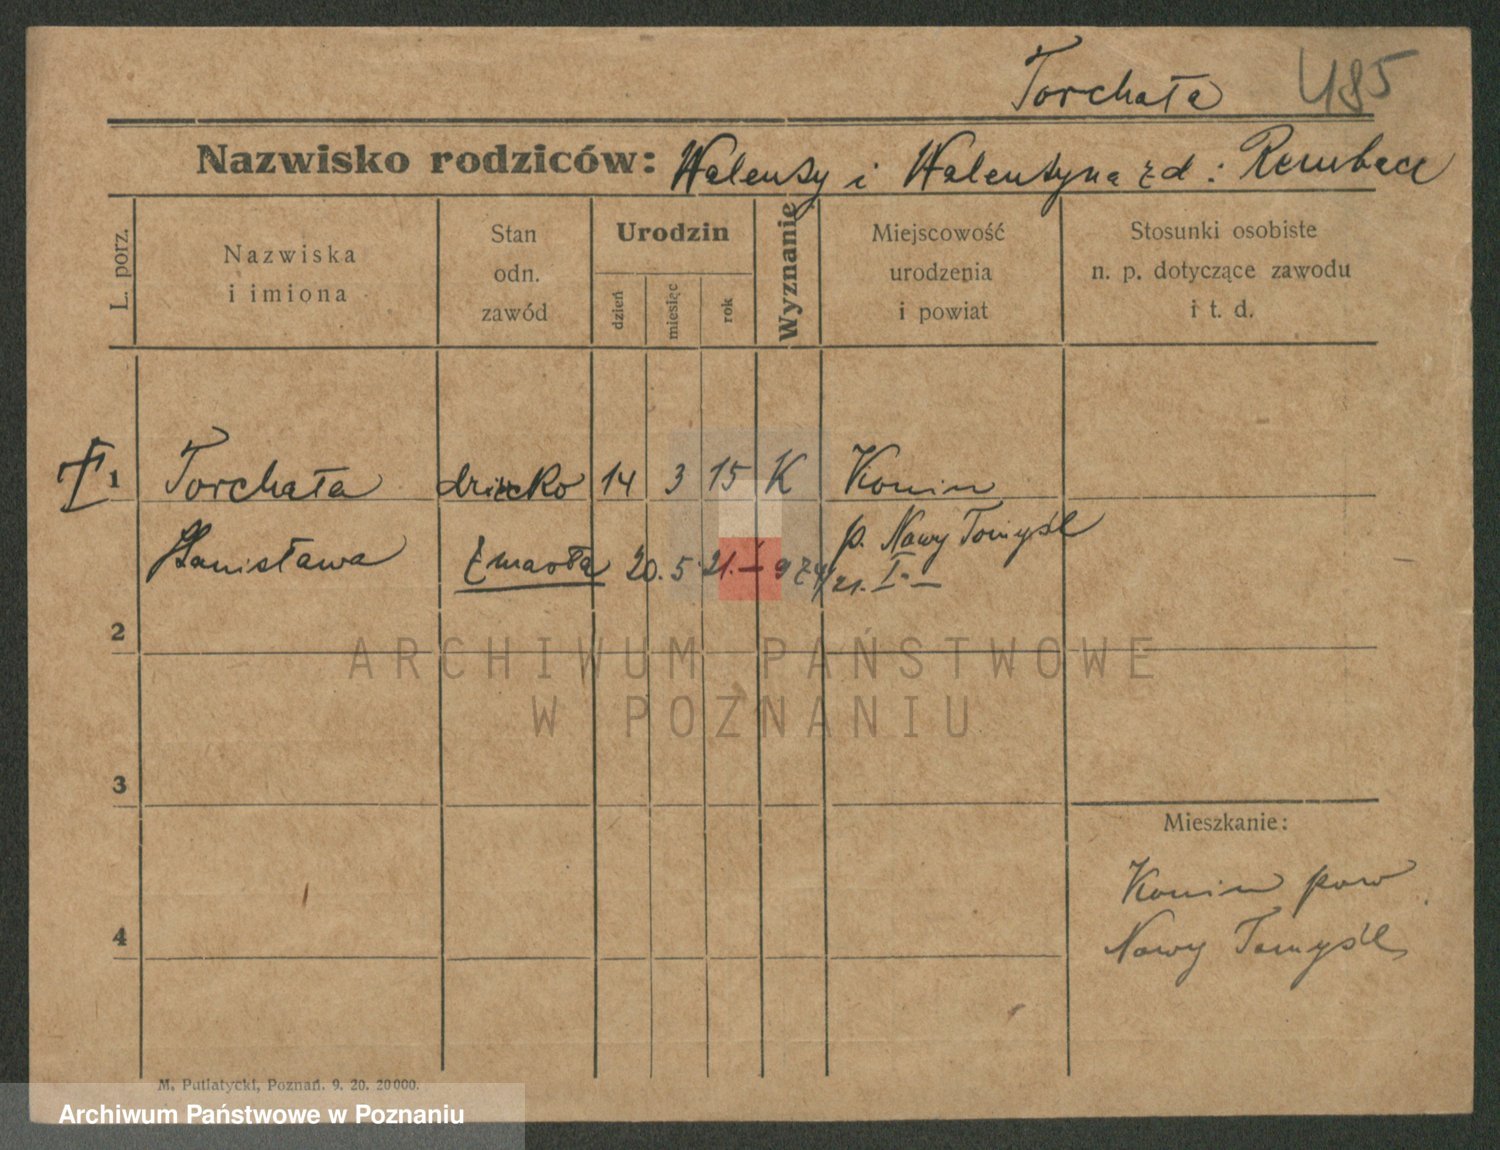 Torchała 485
Nazwisko rodziców: Walenty i Walentyna z d: Rembacz
L. porz.
Nazwiska
i imiona
Stan
odn.
zawód
Urodzin
dzień
miesiąc
rok
Wyznanie
Miejscowość
urodzenia
i powiat
Stosunki osobiste
n. p. dotyczące zawodu
i t. d.
1 Torchała dziecko 14 3 15 K Konin
Stanisława Zmarła 20. 5. 21. p. Nowy Tomyśl
21. I.
2
3
4
Mieszkanie:
Konin pow
Nowy Tomyśl
M. Putiatycki, Poznań. 9. 20. 20000.
ARCHIWUM PAŃSTWOWE
W POZNANIU
Archiwum Państwowe w Poznaniu